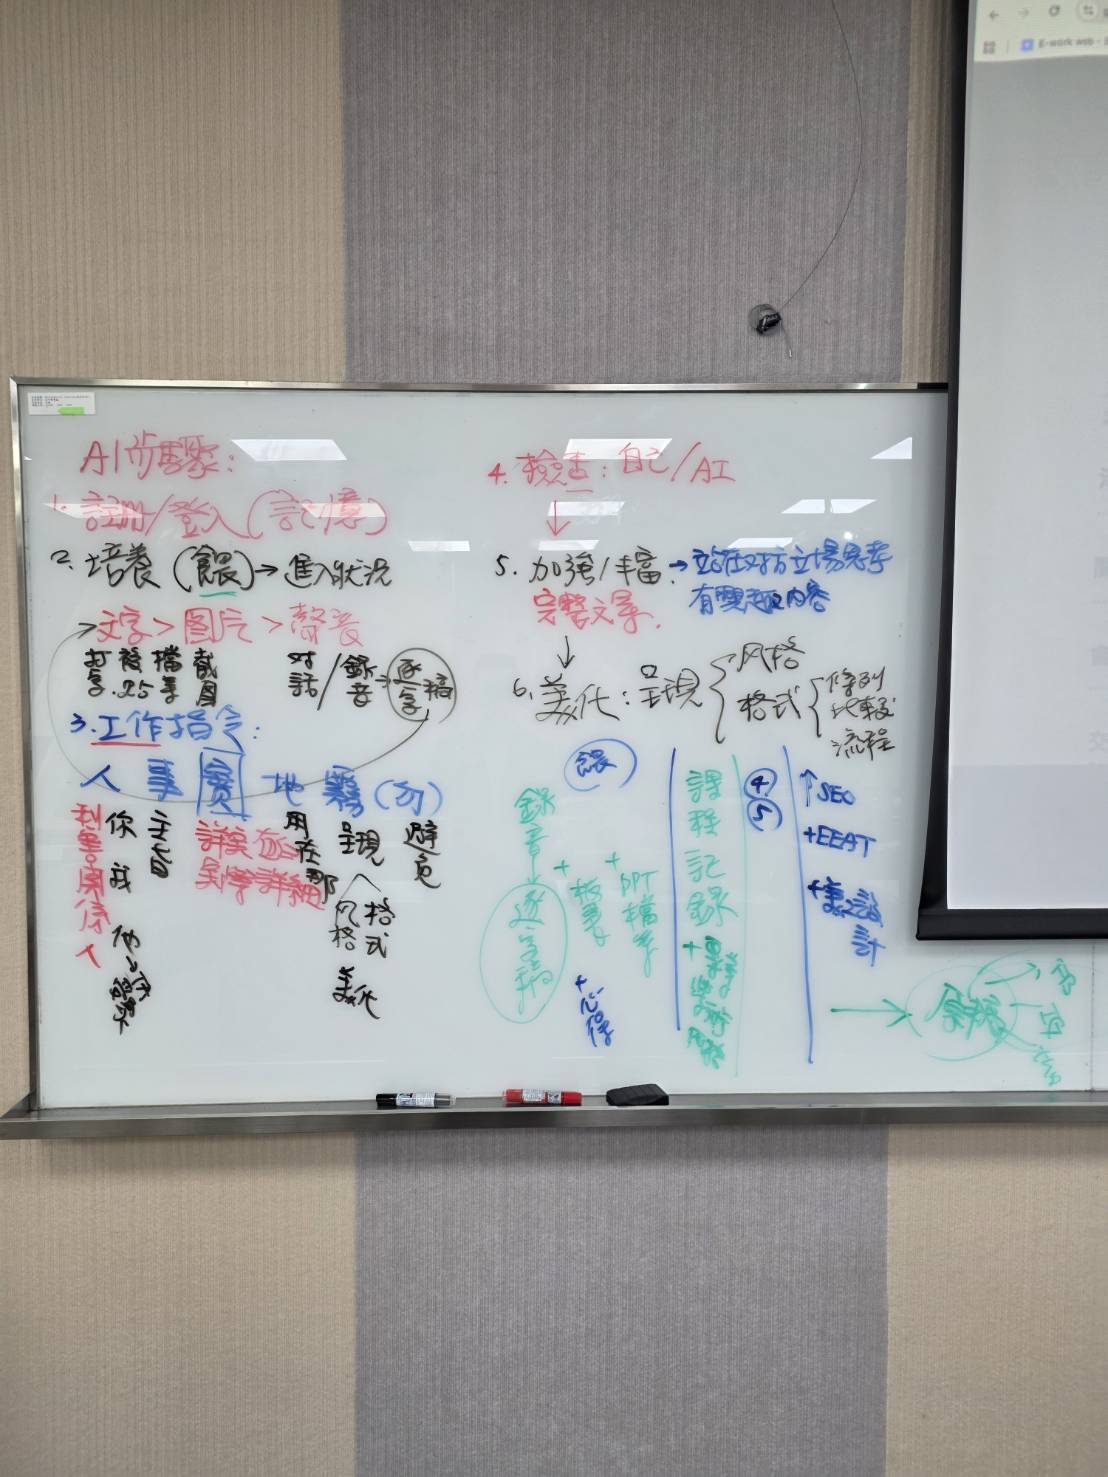 AI步驟:
1. 註冊/登入(記憶)
2. 培養(餵)→進入狀況
→文字>图片>聲音
打字.
複25
檔案
截圖
对話/錄音→逐字稿
3.工作指令:
人 事 實 地 霧 (勿)
利害關係人
你 我 他
主旨
詳實
詳細
用在那
呈現
风格
格式
美化
避免
4. 檢查: 自己/AI
↓
5. 加強/丰富. →站在对方立場思考
有興趣内容
完整文案.
↓
6. 美化: 呈現
风格
格式
條列
比較
流程
餵
錄音→逐字稿
+板書
+PPT檔案
+心得
課程記錄
④
⑤
↑SEO
+EEAT
設計